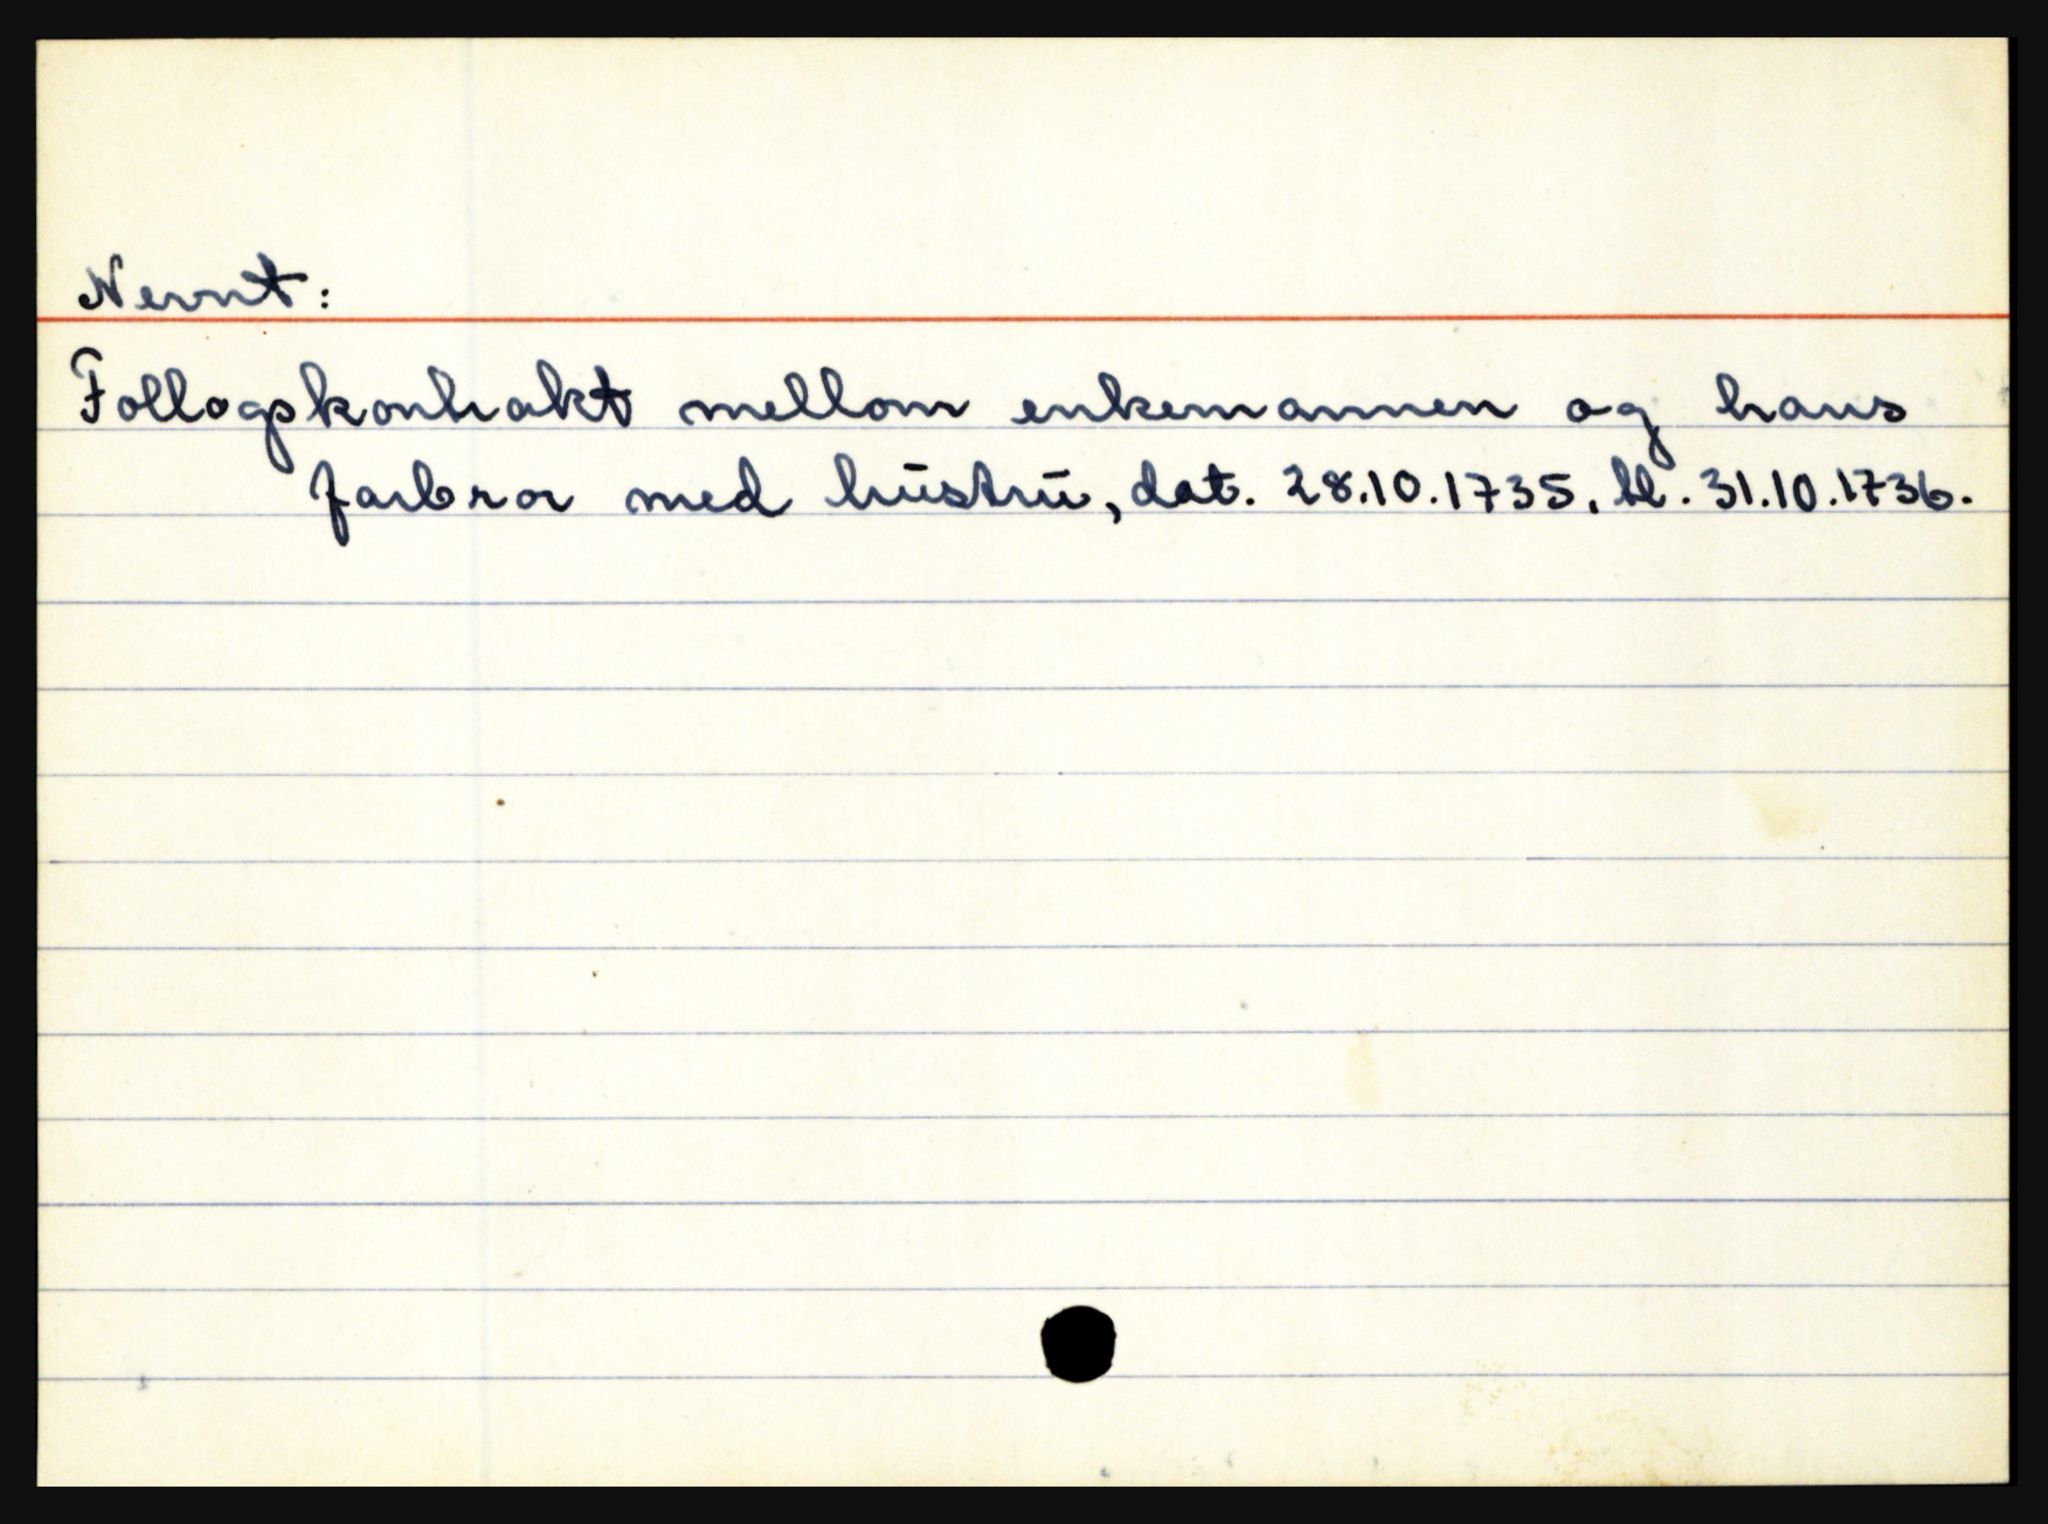 Nevnt:
Follogskontrakt mellom enkemannen og hans
farbror med hustru, dat. 28.10.1735, tl. 31.10.1736.